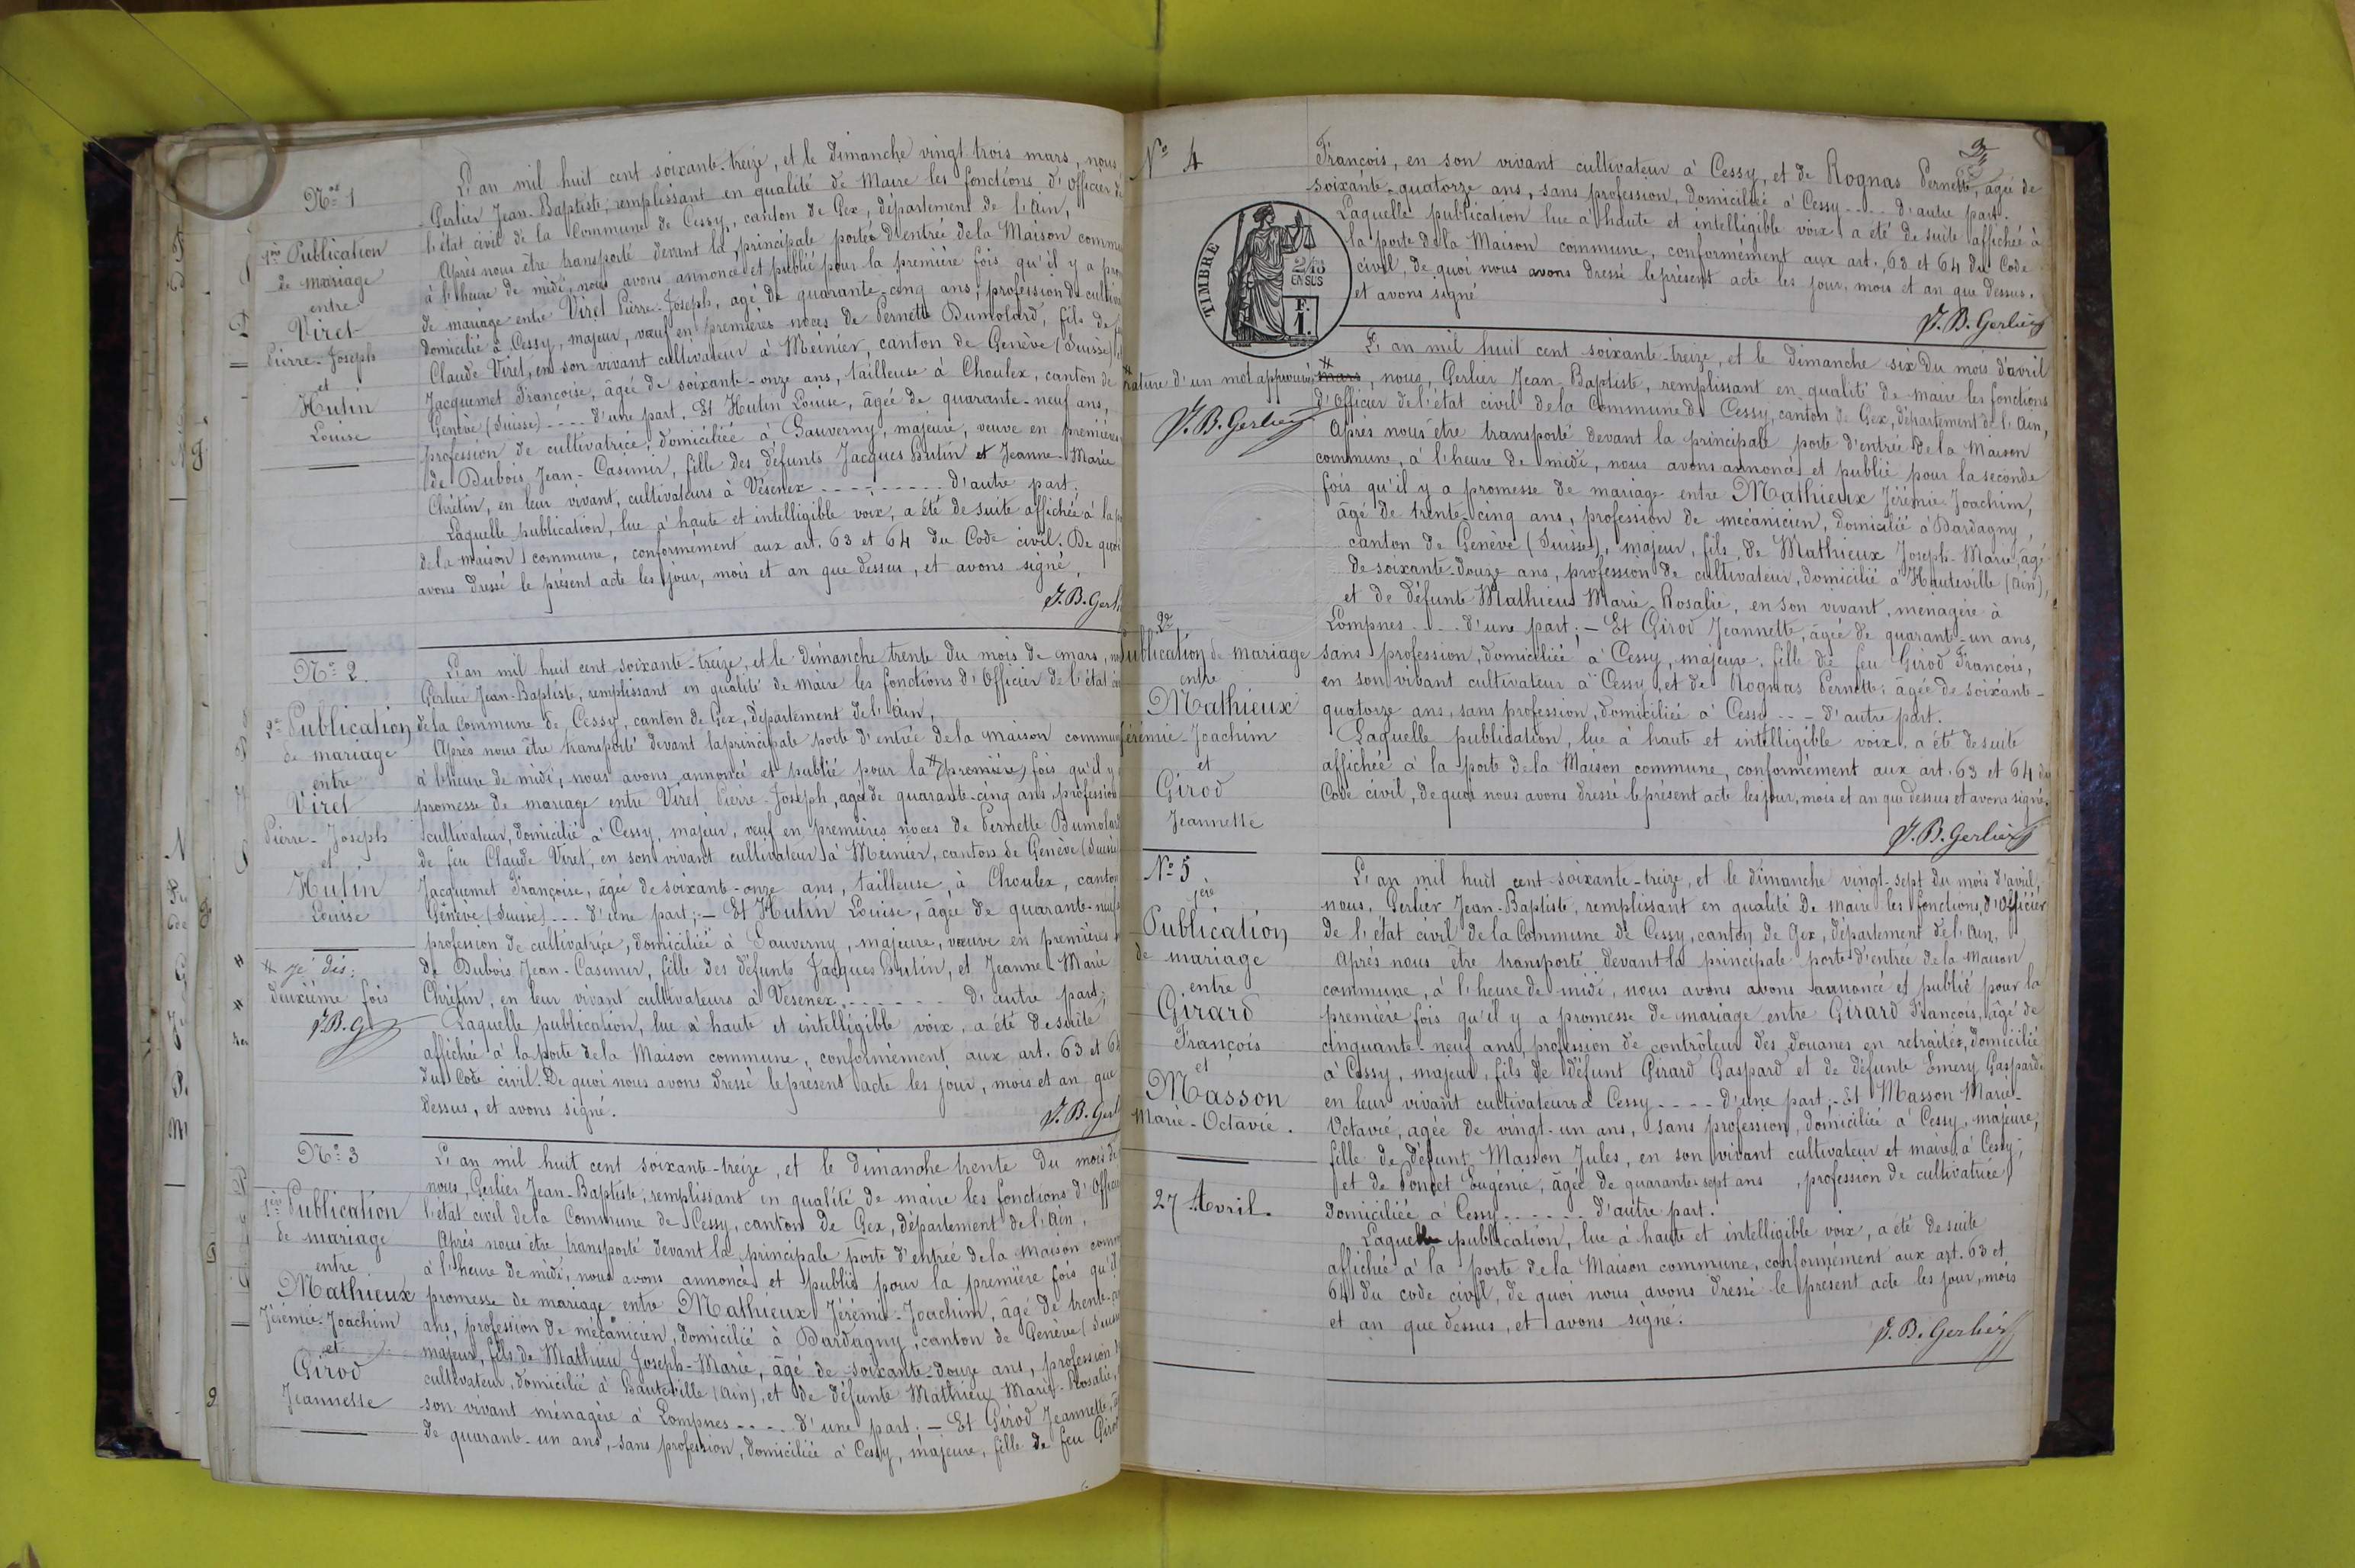 Nos 1
1ère Publication
de mariage
entre
Viret
Pierre-Joseph
et
Hutin
Louise
L'an mil huit cent soixante-treize, et le dimanche vingt-trois mars, nous
Gerlier Jean-Baptiste, remplissant en qualité de Maire les fonctions d'Officier de
l'état civil de la Commune de Cessy, canton de Gex, département de l'Ain,
Après nous être transporté devant la principale portée d'entrée de la Maison commu
à l'heure de midi, nous avons annoncé et publié pour la première fois qu'il y a pro
de mariage entre Viret Pierre-Joseph, agé de quarante-cinq ans, profession de cultiva
domicilié à Cessy, majeur, vœuf en premières noces de Pernette Dumolard, fils de
Claude Viret, en son vivant cultivateur à Meinier, canton de Genève (Suisse)
Jacquemet Françoise, âgée de soixante-onze ans, tailleuse à Choulex, canton de
Genève (Suisse) .... d'une part. Et Hutin Louise, âgée de quarante-neuf ans,
profession de cultivatrice, domiciliée à Sauverny, majeure, veuve en premières
de Dubois Jean-Casimir, fille des défunts Jacques Hutin et Jeanne-Marie
Chrétin, en leur vivant, cultivateurs à Vésenex .......... d'autre part.
Laquelle publication, lue à haute et intelligible voix, a été de suite affichée à la
de la maison commune, conformément aux art. 63 et 64 du Code civil. De quoi
avons dressé le présent acte les jour, mois et an que dessus, et avons signé,
J. B. Gerli
No 2.
2e Publication
de mariage
entre
Viret
Pierre-Joseph
et
Hutin
Louise
* Je dis:
deuxième fois
J. B. G
L'an mil huit cent soixante-treize, et le dimanche trente du mois de mars,
Gerlier Jean-Baptiste, remplissant en qualité de maire les fonctions d'Officier de l'état
de la Commune de Cessy, canton de Gex, département de l'Ain,
Après nous être transporté devant la principale porte d'entrée de la maison commun
à l'heure de midi, nous avons annoncé et publié pour la * (première) fois qu'il y
promesse de mariage entre Viret Pierre-Joseph, agé de quarante-cinq ans profession
cultivateur, domicilié à Cessy, majeur, veuf en premières noces de Pernette Dumolard
de feu Claude Viret, en son vivant cultivateur à Meinier, canton de Genève (Suisse
Jacquemet Françoise, âgée de soixante-onze ans, tailleuse, à Choulex, canton
Genève (Suisse) ... d'une part; - Et Hutin Louise, âgée de quarante-neuf
profession de cultivatrice, domiciliée à Sauverny, majeure, vœuve en premières
de Dubois Jean-Casimir, fille des défunts Jacques Hutin, et Jeanne-Marie
Chrétin, en leur vivant cultivateurs à Vesenex ....... d'autre part;
Laquelle publication, lue à haute et intelligible voix, a été de suite
affichée à la porte de la Maison commune, conformément aux art. 63 et 64
du Code civil. De quoi nous avons dressé le présent acte les jour, mois et an que
dessus, et avons signé.
J. B. Gerl
No 3
1ère Publication
de mariage
entre
Mathieux
Jérémie-Joachim
et
Girod
Jeannette
L'an mil huit cent soixante-treize, et le dimanche trente du mois de
nous, Gerlier Jean-Baptiste, remplissant en qualité de maire les fonctions d'Officier
l'état civil de la Commune de Cessy, canton de Gex, département de l'Ain,
Après nous être transporté devant la principale porte d'entrée de la maison comm
à l'heure de midi, nous avons annoncé et publié pour la première fois qu'il
promesse de mariage entre Mathieux Jérémie-Joachim, âgé de trente-
ans, profession de mécanicien, domicilié à Dardagny, canton de Genève (Suisse
majeur, fils de Mathieu Joseph-Marie, âgé de soixante-douze ans, profession
cultivateur, domicilié à Hauteville (Ain), et de défunte Matthieu Marie-Rosalie,
son vivant ménagère à Lompnes .... d'une part. - Et Girod Jeannette,
de quarante-un ans, sans profession, domiciliée à Cessy, majeure, fille de feu Girod
No 4
2
François, en son vivant cultivateur à Cessy, et de Rognas Pernette, âgée de
soixante-quatorze ans, sans profession, domiciliée à Cessy .... d'autre part.
Laquelle publication lue à haute et intelligible voix a été de suite affichée à
la porte de la Maison commune, conformément aux art. 63 et 64 du Code
civil, de quoi nous avons dressé le présent acte les jour, mois et an que dessus.
et avons signé
J. B. Gerlier
TIMBRE
2/10
EN SUS
F.
1.
rature d'un mot approuvée
J. B. Gerlier
2e
Publication de mariage
entre
Mathieux
Jérémie-Joachim
et
Girod
Jeannette
L'an mil huit cent soixante-treize, et le dimanche six du mois d'avril
* mars, nous, Gerlier Jean-Baptiste, remplissant en qualité de maire les fonctions
d'Officier de l'état civil de la Commune de Cessy, canton de Gex, département de l'Ain,
Après nous être transporté devant la principale porte d'entrée de la Maison
commune, à l'heure de midi, nous avons annoncé et publié pour la seconde
fois qu'il y a promesse de mariage entre Mathieux Jérémie-Joachim,
âgé de trente-cinq ans, profession de mécanicien, domicilié à Dardagny
canton de Genève (Suisse), majeur, fils de Mathieux Joseph-Marie, âgé
de soixante-douze ans, profession de cultivateur, domicilié à Hauteville (Ain),
et de défunte Mathieus Marie-Rosalie, en son vivant, ménagère à
Lompnes .... d'une part; - Et Girod Jeannette, âgée de quarante-un ans,
sans profession, domiciliée à Cessy, majeure, fille de feu Girod François,
en son vivant cultivateur à Cessy, et de Rognas Pernette, âgée de soixante-
quatorze ans, sans profession, domiciliée à Cessy ... d'autre part.
Laquelle publication, lue à haute et intelligible voix, a été de suite
affichée à la porte de la Maison commune, conformément aux art. 63 et 64 du
Code civil, de quoi nous avons dressé le présent acte les jour, mois et an que dessus et avons signé.
J. B. Gerlier
No 5
1ère
Publication
de mariage
entre
Girard
François
et
Masson
Marie-Octavie.
27 Avril.
L'an mil huit cent soixante-treize, et le dimanche vingt-sept du mois d'avril,
nous, Gerlier Jean-Baptiste, remplissant en qualité de maire les fonctions d'Officier
de l'état civil de la Commune de Cessy, canton de Gex, département de l'Ain,
Après nous être transporté devant la principale porte d'entrée de la Maison
commune, à l'heure de midi, nous avons avons annoncé et publié pour la
première fois qu'il y a promesse de mariage entre Girard François, âgé de
cinquante-neuf ans, profession de contrôleur des douanes en retraite, domicilié
à Cessy, majeur, fils de défunt Girard Gaspard et de défunte Emery Gasparde
en leur vivant cultivateurs à Cessy .... d'une part; - Et Masson Marie-
Octavie, agée de vingt-un ans, sans profession, domiciliée à Cessy, majeure,
fille de défunt Masson Jules, en son vivant cultivateur et maire à Cessy,
et de Poncet Eugénie, âgée de quarante sept ans, profession de cultivatrice,
domiciliée à Cessy ...... d'autre part.
Laquelle publication, lue à haute et intelligible voix, a été de suite
affichée à la porte de la Maison commune, conformément aux art. 63 et
64 du code civil, de quoi nous avons dressé le présent acte les jour, mois
et an que dessus, et avons signé.
J. B. Gerlier